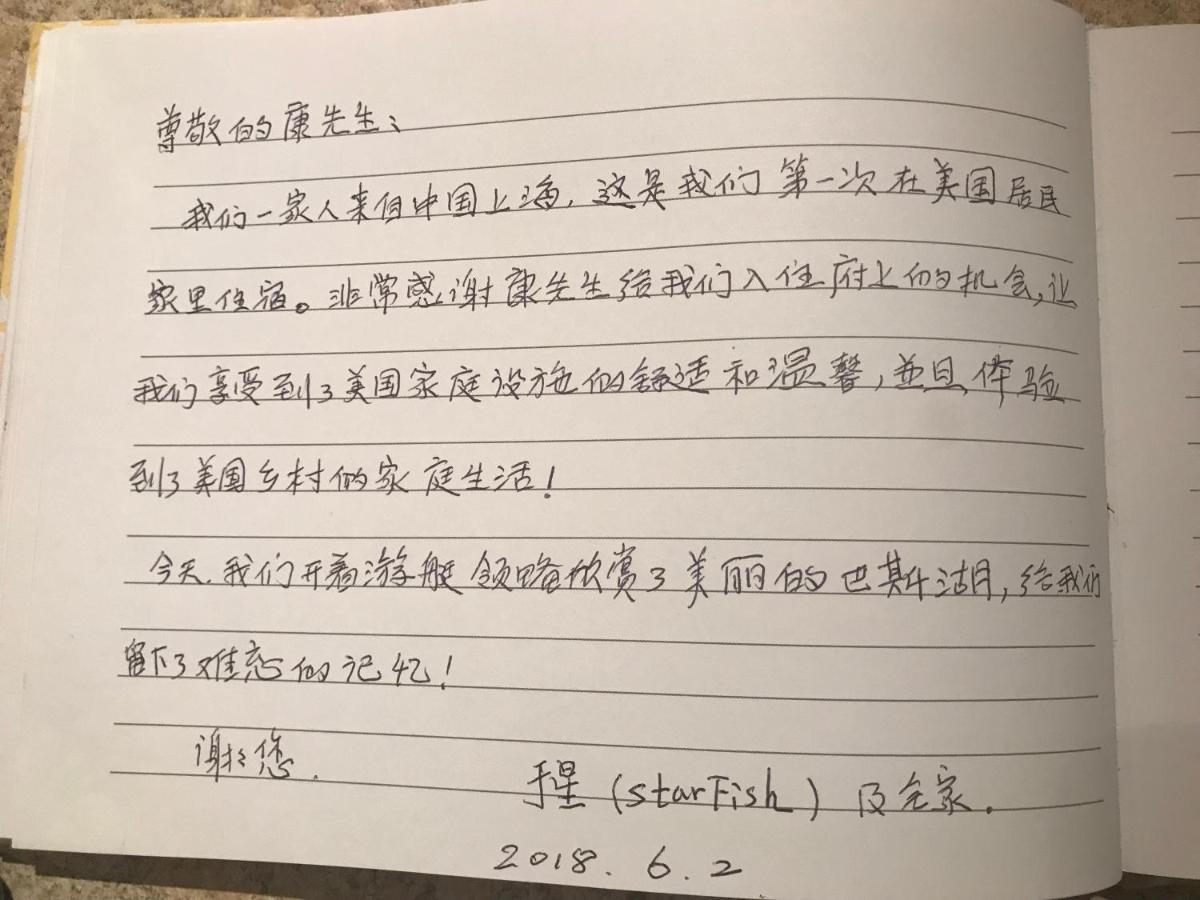 尊敬的康先生:
我们一家人来自中国上海,这是我们第一次在美国居民
家里住宿。非常感谢康先生给我们入住府上的机会,让
我们享受到了美国家庭设施的舒适和温馨,并且,体验
到了美国乡村的家庭生活!
今天,我们开着游艇领略欣赏了美丽的巴斯湖,给我们
留下了难忘的记忆!
谢谢您.
(starFish) 及全家.
2018.6.2